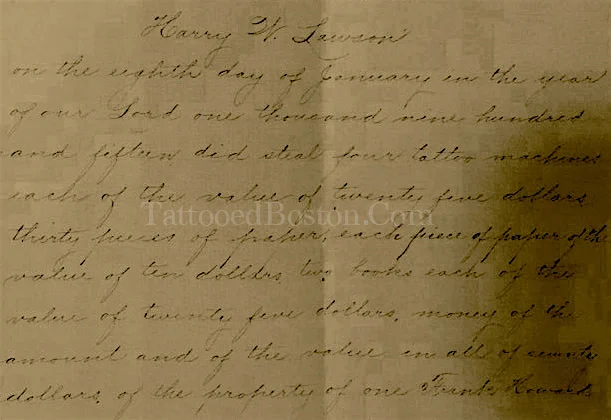 Harry W. Lawson
on the eighth day of January in the year
of our Lord one thousand nine hundred
and fifteen did steal four tattoo machines
each of the value of twenty five dollars
TattooedBoston.Com
thirty pieces of paper, each piece of paper of the
value of ten dollars two books each of the
value of twenty five dollars, money of the
amount and of the value in all of seventy
dollars, of the property of one Frank Howard